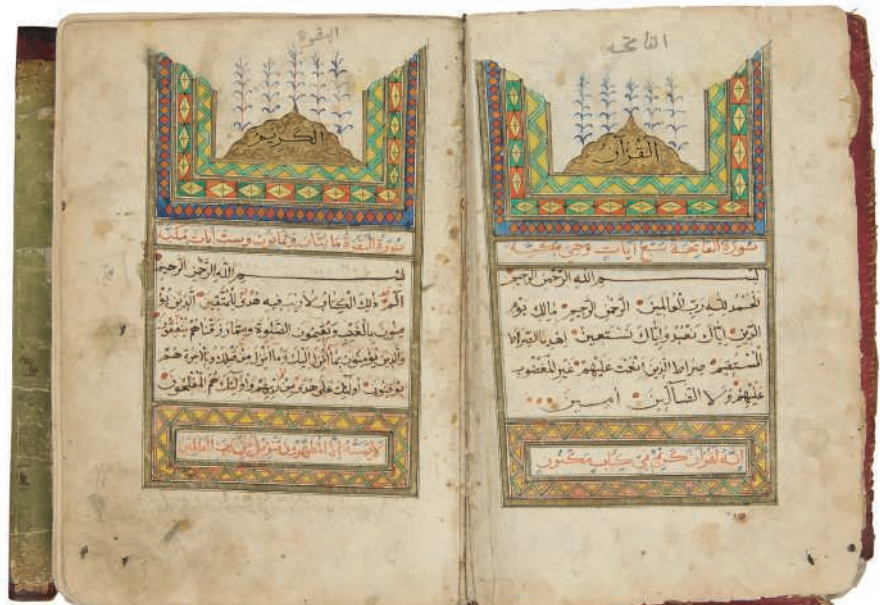 الفاتحه
القرآن
سورة الفاتحة سبع ايات وهي مكية
بسم الله الرحمن الرحيم
الحمد لله رب العالمين الرحمن الرحيم مالك يوم
الدين اياك نعبد واياك نستعين اهدنا الصراط
المستقيم صراط الذين انعمت عليهم غير المغضوب
عليهم ولا الضآلين امين
انه لقرآن كريم في كتاب مكنون
البقرة
الكريم
سورة البقرة مايتان وثمانون وست ايات
بسم الله الرحمن الرحيم
الم ذلك الكتاب لا ريب فيه هدى للمتقين الذين يؤ
منون بالغيب ويقيمون الصلوة ومما رزقناهم ينفقون
والذين يؤمنون بما انزل اليك وما انزل من قبلك وبالآخرة هم
يوقنون اولئك على هدى من ربهم واولئك هم المفلحون
لا يمسه الا المطهرون تنزيل من رب العالمين